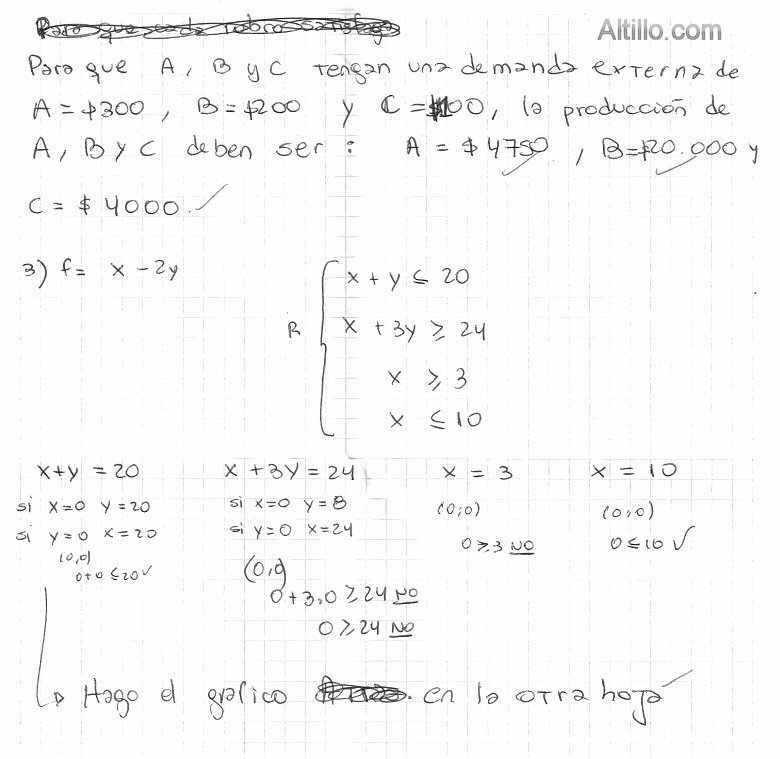 Altillo.com
Para que A, B y C tengan una demanda externa de
A = $300, B = $200 y C = $100, la producción de
A, B y C deben ser: A = $4750, B = $20.000 y
C = $4000.
3) f = x - 2y
R { x + y ≤ 20
x + 3y ≥ 24
x ≥ 3
x ≤ 10
x+y = 20 x + 3y = 24 x = 3 x = 10
si x=0 y=20 si x=0 y=8 (0;0) (0;0)
si y=0 x=20 si y=0 x=24 0≥3 NO 0≤10 ✓
(0,0) (0,0)
0+0 ≤20 ✓ 0+3.0 ≥24 NO
0≥24 NO
↳ Hago el grafico en la otra hoja